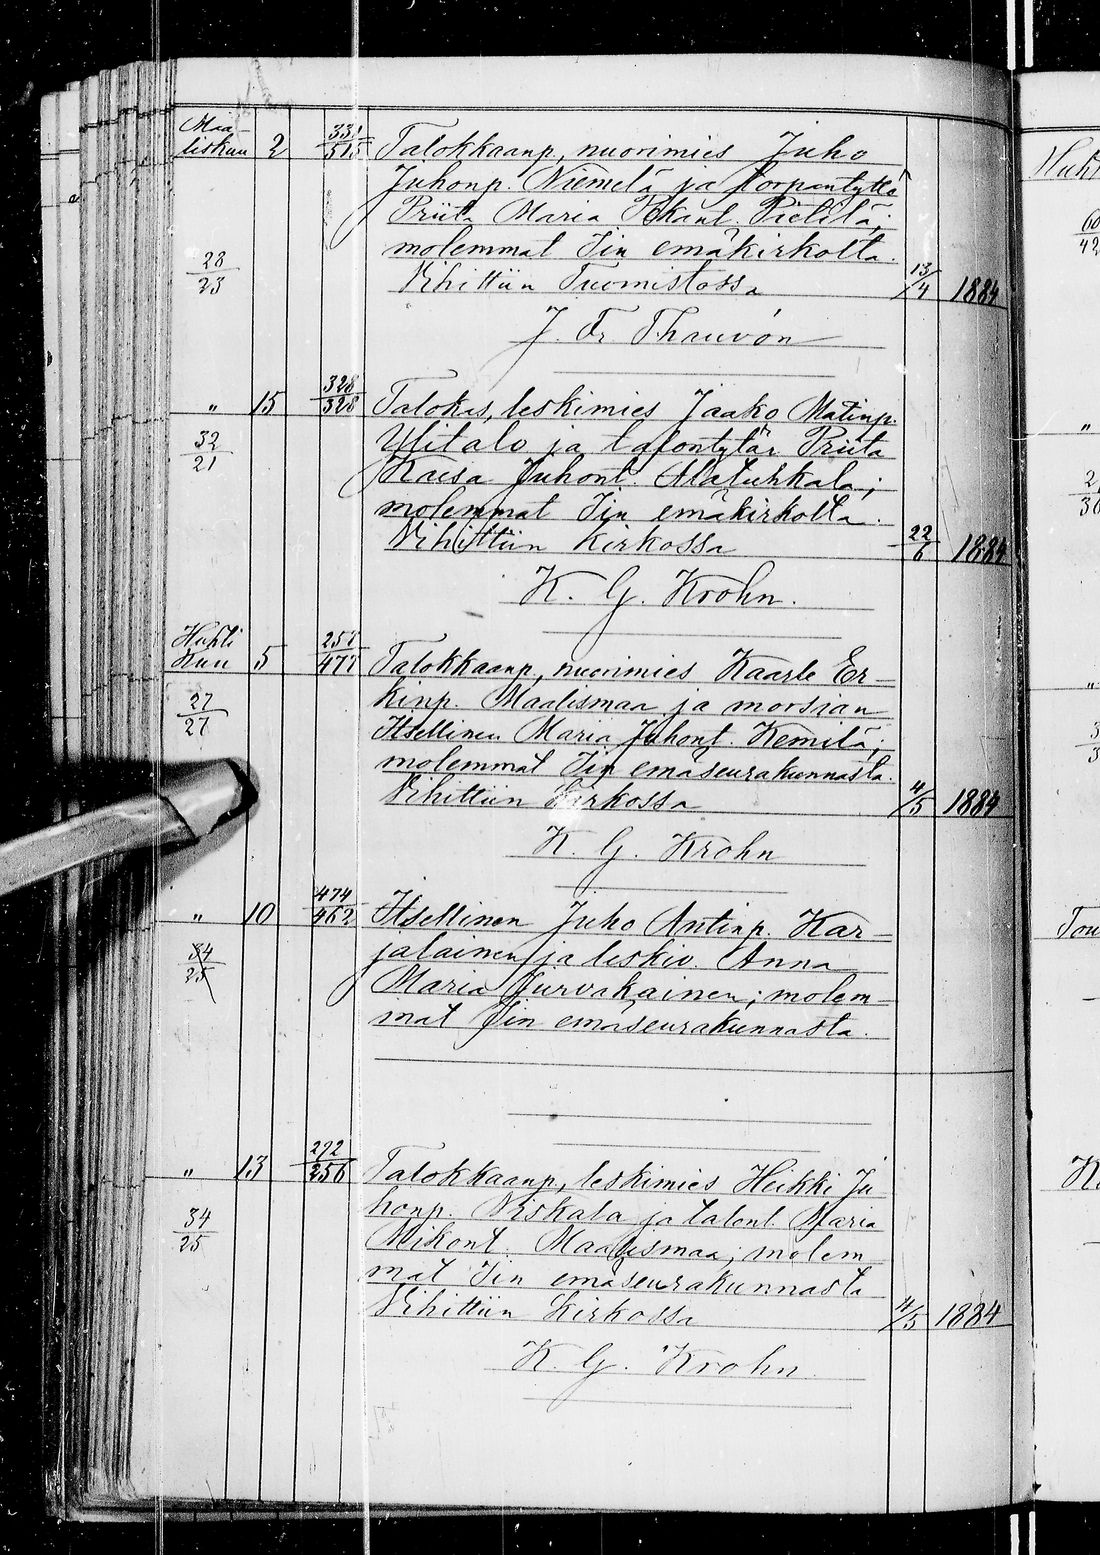 Maa-
liskuu 2 331/515 Talokkaanp, nuorimies Juho
Juhonp. Niemelä ja torpantyttö
Priita Maria Pekant. Pietilä;
molemmat Iin emäkirkolta.
28/23 Vihittiin Tuomistossa 13/4 1884
J. Fr. Thauvón
" 15 328/328 Talokas, leskimies Jaako Matinp.
32/21 Ylitalo ja talontytär Priita
Kaisa Juhont. Alatuhkala;
molemmat Iin emäkirkolta.
Vihittiin kirkossa 22/6 1884
K. G. Krohn.
Huhti
Kuu 5 257/477 Talokkaanp, nuorimies Kaarle Er-
27/27 kinp. Maalismaa ja morsian
Itsellinen Maria Juhont. Kemilä;
molemmat Iin emäseurakunnasta.
Vihittiin kirkossa 4/5 1884
K. G. Krohn
" 10 474/462 Itsellinen Juho Antinp. Kar-
34/25 jalainen ja leskiv. Anna
Maria Turvakainen; molem-
mat Iin emäseurakunnasta.
" 13 292/256 Talokkaanp, leskimies Heikki Ju
34/25 honp. Niskala ja talont. Maria
Mikont. Maalismaa; molem
mat Iin emäseurakunnasta
Vihittiin kirkossa 4/5 1884
K. G. Krohn